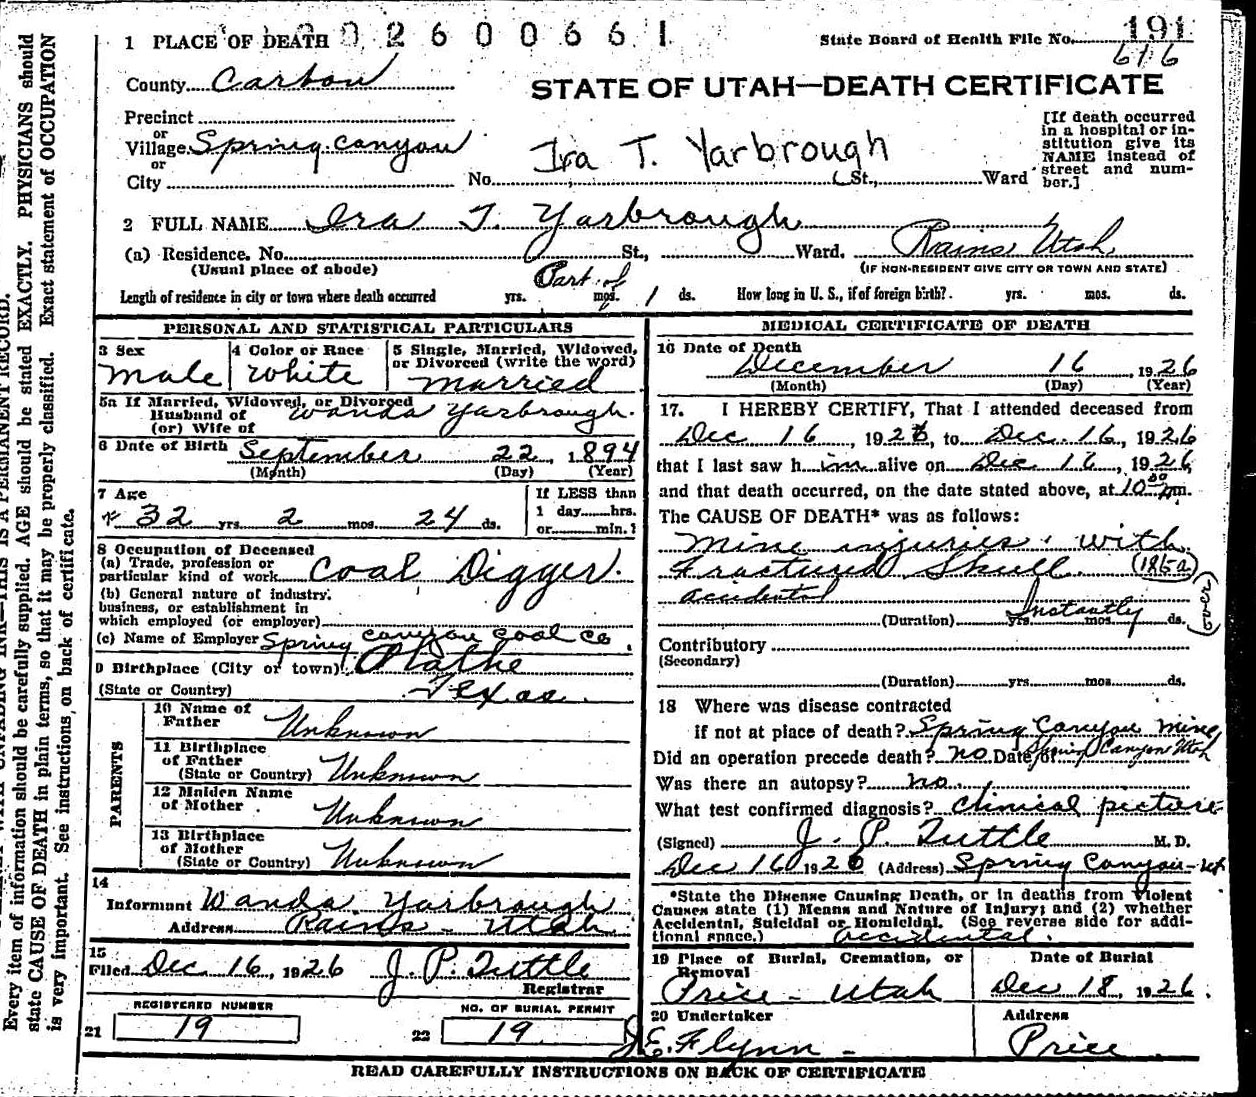 1 PLACE OF DEATH 002600661
State Board of Health File No. 191
616
County Carbon
STATE OF UTAH—DEATH CERTIFICATE
Precinct
or
Village Spring Canyon
or
City No. St., Ward
Ira T. Yarbrough
[If death occurred
in a hospital or in-
stitution give its
NAME instead of
street and num-
ber.]
2 FULL NAME Ira T. Yarbrough
(a) Residence. No. St., Ward. Rains Utah
(Usual place of abode) (IF NON-RESIDENT GIVE CITY OR TOWN AND STATE)
Part of
Length of residence in city or town where death occurred yrs. mos. 1 ds. How long in U. S., if of foreign birth? yrs. mos. ds.
PERSONAL AND STATISTICAL PARTICULARS
3 Sex 4 Color or Race 5 Single, Married, Widowed,
or Divorced (write the word)
Male White Married
5a If Married, Widowed, or Divorced
Husband of Wanda Yarbrough.
(or) Wife of
6 Date of Birth September 22, 1894
(Month) (Day) (Year)
7 Age If LESS than
32 yrs. 2 mos. 24 ds. 1 day hrs.
or min.?
8 Occupation of Deceased
(a) Trade, profession or
particular kind of work Coal Digger.
(b) General nature of industry,
business, or establishment in
which employed (or employer)
(c) Name of Employer Spring Canyon Coal Co.
9 Birthplace (City or town) Olathe
(State or Country) Texas.
PARENTS
10 Name of
Father Unknown
11 Birthplace
of Father
(State or Country) Unknown
12 Maiden Name
of Mother Unknown
13 Birthplace
of Mother
(State or Country) Unknown
14
Informant Wanda Yarbrough
Address Rains - Utah
15
Filed Dec 16, 1926 J. P. Tuttle
Registrar
REGISTERED NUMBER NO. OF BURIAL PERMIT
21 19 22 19
MEDICAL CERTIFICATE OF DEATH
16 Date of Death
December 16 1926
(Month) (Day) (Year)
17. I HEREBY CERTIFY, That I attended deceased from
Dec 16, 1926, to Dec. 16, 1926
that I last saw h im alive on Dec 16, 1926,
and that death occurred, on the date stated above, at 10 00 m.
The CAUSE OF DEATH* was as follows:
Mine injuries. with
Fractured Skull (185a)
accidental
(Duration) yrs. mos. ds. Instantly
(over)
Contributory
(Secondary)
(Duration) yrs. mos. ds.
18 Where was disease contracted
if not at place of death? Spring Canyon Mine
Spring Canyon Utah
Did an operation precede death? no Date of
Was there an autopsy? no.
What test confirmed diagnosis? Clinical picture
(Signed) J. P. Tuttle M. D.
Dec 16 1926 (Address) Spring Canyon-Ut
*State the Disease Causing Death, or in deaths from Violent
Causes state (1) Means and Nature of Injury; and (2) whether
Accidental, Suicidal or Homicidal. (See reverse side for addi-
tional space.) accidental.
19 Place of Burial, Cremation, or Date of Burial
Removal
Price - Utah Dec 18, 1926.
20 Undertaker Address
J.E. Flynn - Price
READ CAREFULLY INSTRUCTIONS ON BACK OF CERTIFICATE
THIS IS A PERMANENT RECORD.
Every item of information should be carefully supplied. AGE should be stated EXACTLY. PHYSICIANS should
state CAUSE OF DEATH in plain terms, so that it may be properly classified. Exact statement of OCCUPATION
is very important. See instructions, on back of certificate.